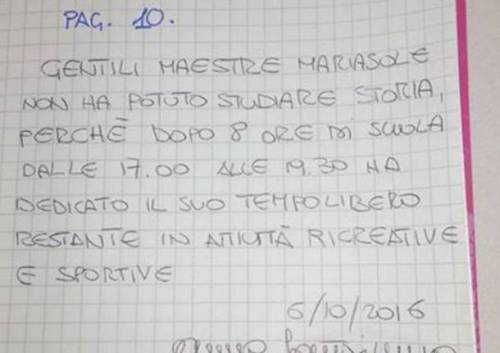 PAG. 10.
GENTILI MAESTRE MARIASOLE
NON HA POTUTO STUDIARE STORIA,
PERCHÈ DOPO 8 ORE DI SCUOLA
DALLE 17.00 ALLE 19.30 HA
DEDICATO IL SUO TEMPOLIBERO
RESTANTE IN ATIVITÀ RICREATIVE
E SPORTIVE
6/10/2016